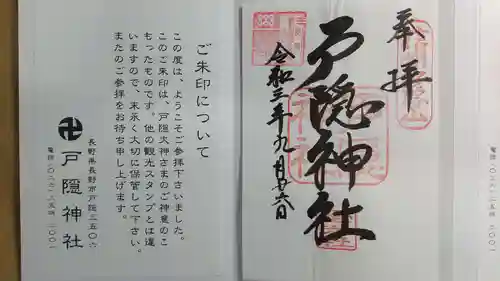 奉拝
戸隠神社
令和三年九月廿六日
ご朱印について
この度は、ようこそご参拝下さいました。
このご朱印は、戸隠大神さまのご神意のこ
もったものです。他の観光スタンプとは違
いますので、末永く大切に保管して下さい。
またのご参拝をお待ち申し上げます。
長野県長野市戸隠三五〇六
卍戸隠神社
電話(〇二六)二五四 二〇〇一